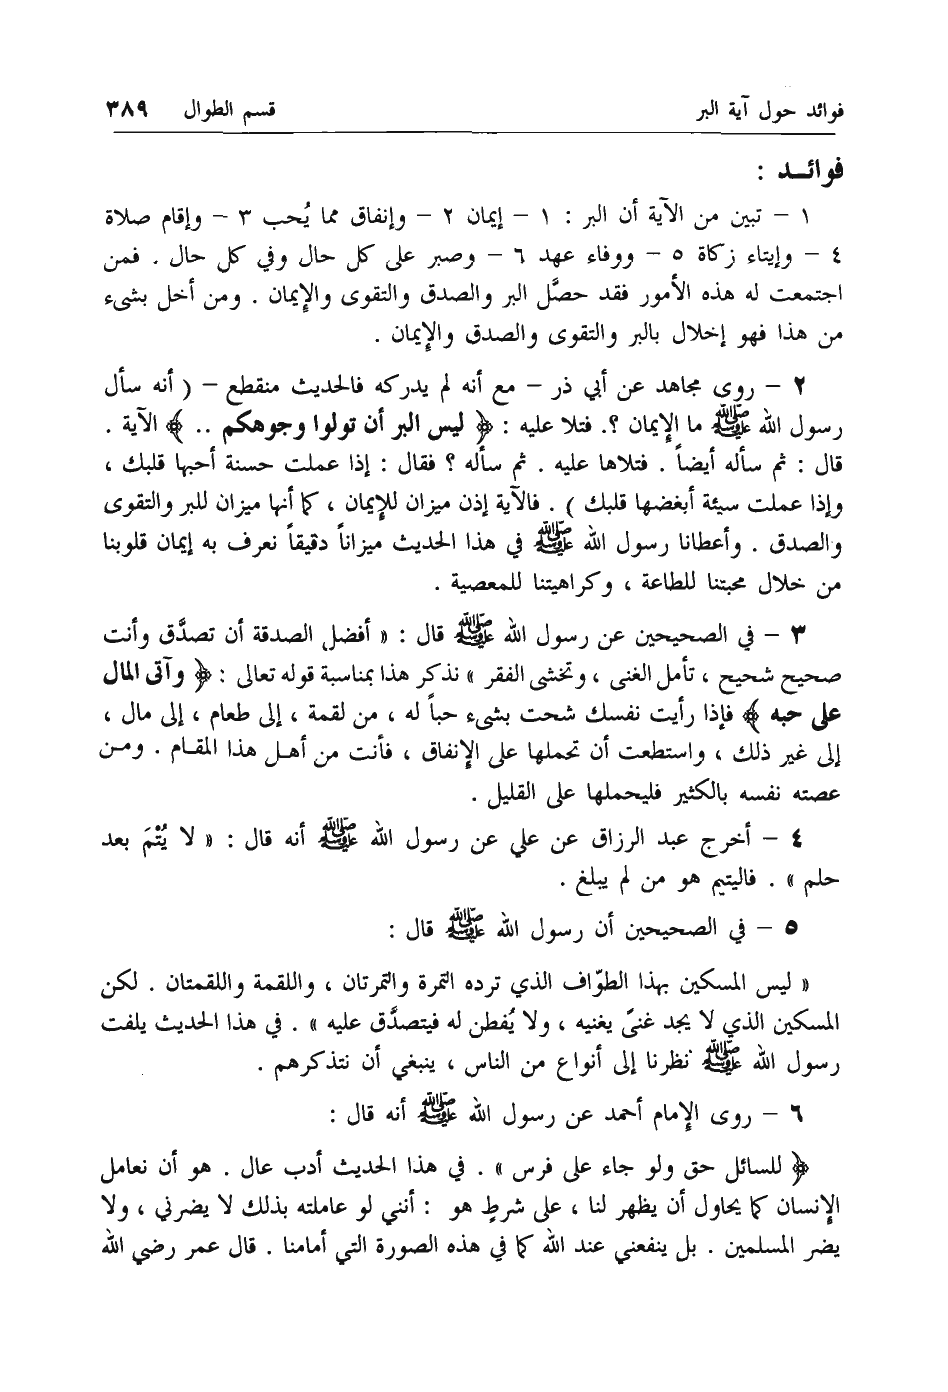 فوائد حول آية البر قسم الطوال ٣٨٩
فوائــد :
١ – تبين من الآية أن البر : ١ – إيمان ٢ – وإنفاق مما يُحب ٣ – وإقام صلاة
٤ – وإيتاء زكاة ٥ – ووفاء عهد ٦ – وصبر على كل حال وفي كل حال . فمن
اجتمعت له هذه الأمور فقد حصَّل البر والصدق والتقوى والإيمان . ومن أخل بشىء
من هذا فهو إخلال بالبر والتقوى والصدق والإيمان .
٢ – روى مجاهد عن أبي ذر – مع أنه لم يدركه فالحديث منقطع – ( أنه سأل
رسول الله ﷺ ما الإيمان ؟. فتلا عليه : ﴿ ليس البر أن تولوا وجوهكم .. ﴾ الآية .
قال : ثم سأله أيضاً . فتلاها عليه . ثم سأله ؟ فقال : إذا عملت حسنة أحبها قلبك ،
وإذا عملت سيئة أبغضها قلبك ) . فالآية إذن ميزان للإيمان ، كما أنها ميزان للبر والتقوى
والصدق . وأعطانا رسول الله ﷺ في هذا الحديث ميزاناً دقيقاً نعرف به إيمان قلوبنا
من خلال محبتنا للطاعة ، وكراهيتنا للمعصية .
٣ – في الصحيحين عن رسول الله ﷺ قال : « أفضل الصدقة أن تصدَّق وأنت
صحيح شحيح ، تأمل الغنى ، وتخشى الفقر » نذكر هذا بمناسبة قوله تعالى : ﴿ وآتى المال
على حبه ﴾ فإذا رأيت نفسك شحت بشىء حباً له ، من لقمة ، إلى طعام ، إلى مال ،
إلى غير ذلك ، واستطعت أن تحملها على الإنفاق ، فأنت من أهـل هذا المقـام . ومـن
عصته نفسه بالكثير فليحملها على القليل .
٤ – أخرج عبد الرزاق عن علي عن رسول الله ﷺ أنه قال : « لا يُتْمَ بعد
حلم » . فاليتيم هو من لم يبلغ .
٥ – في الصحيحين أن رسول الله ﷺ قال :
« ليس المسكين بهذا الطوّاف الذي ترده التمرة والتمرتان ، واللقمة واللقمتان . لكن
المسكين الذي لا يجد غنىً يغنيه ، ولا يُفطن له فيتصدَّق عليه » . في هذا الحديث يلفت
رسول الله ﷺ نظرنا إلى أنواع من الناس ، ينبغي أن نتذكرهم .
٦ – روى الإمام أحمد عن رسول الله ﷺ أنه قال :
﴿ للسائل حق ولو جاء على فرس » . في هذا الحديث أدب عال . هو أن نعامل
الإنسان كما يحاول أن يظهر لنا ، على شرطٍ هو : أنني لو عاملته بذلك لا يضرني ، ولا
يضر المسلمين . بل ينفعني عند الله كما في هذه الصورة التي أمامنا . قال عمر رضي الله